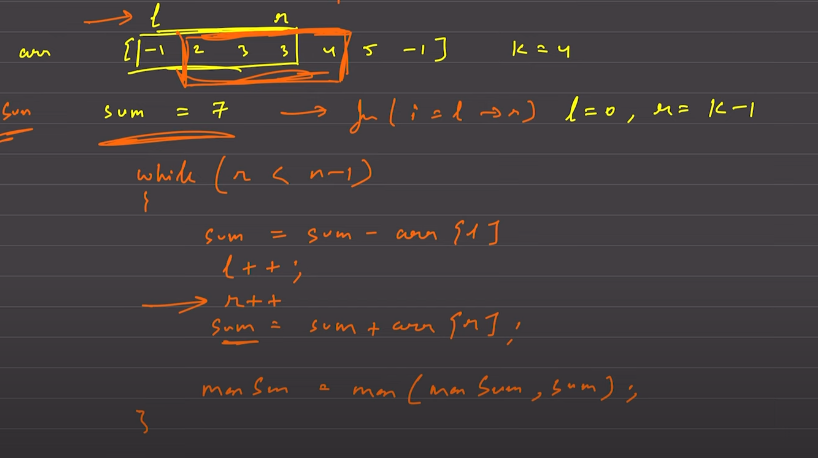 l r
arr [-1 2 3 3 4 5 -1] k = 4
Sum sum = 7 → for (i = l → r) l = 0, r = k-1
while (r < n-1)
{
sum = sum - arr[l]
l++;
→ r++
sum = sum + arr[r];
maxSum = max(maxSum, sum);
}